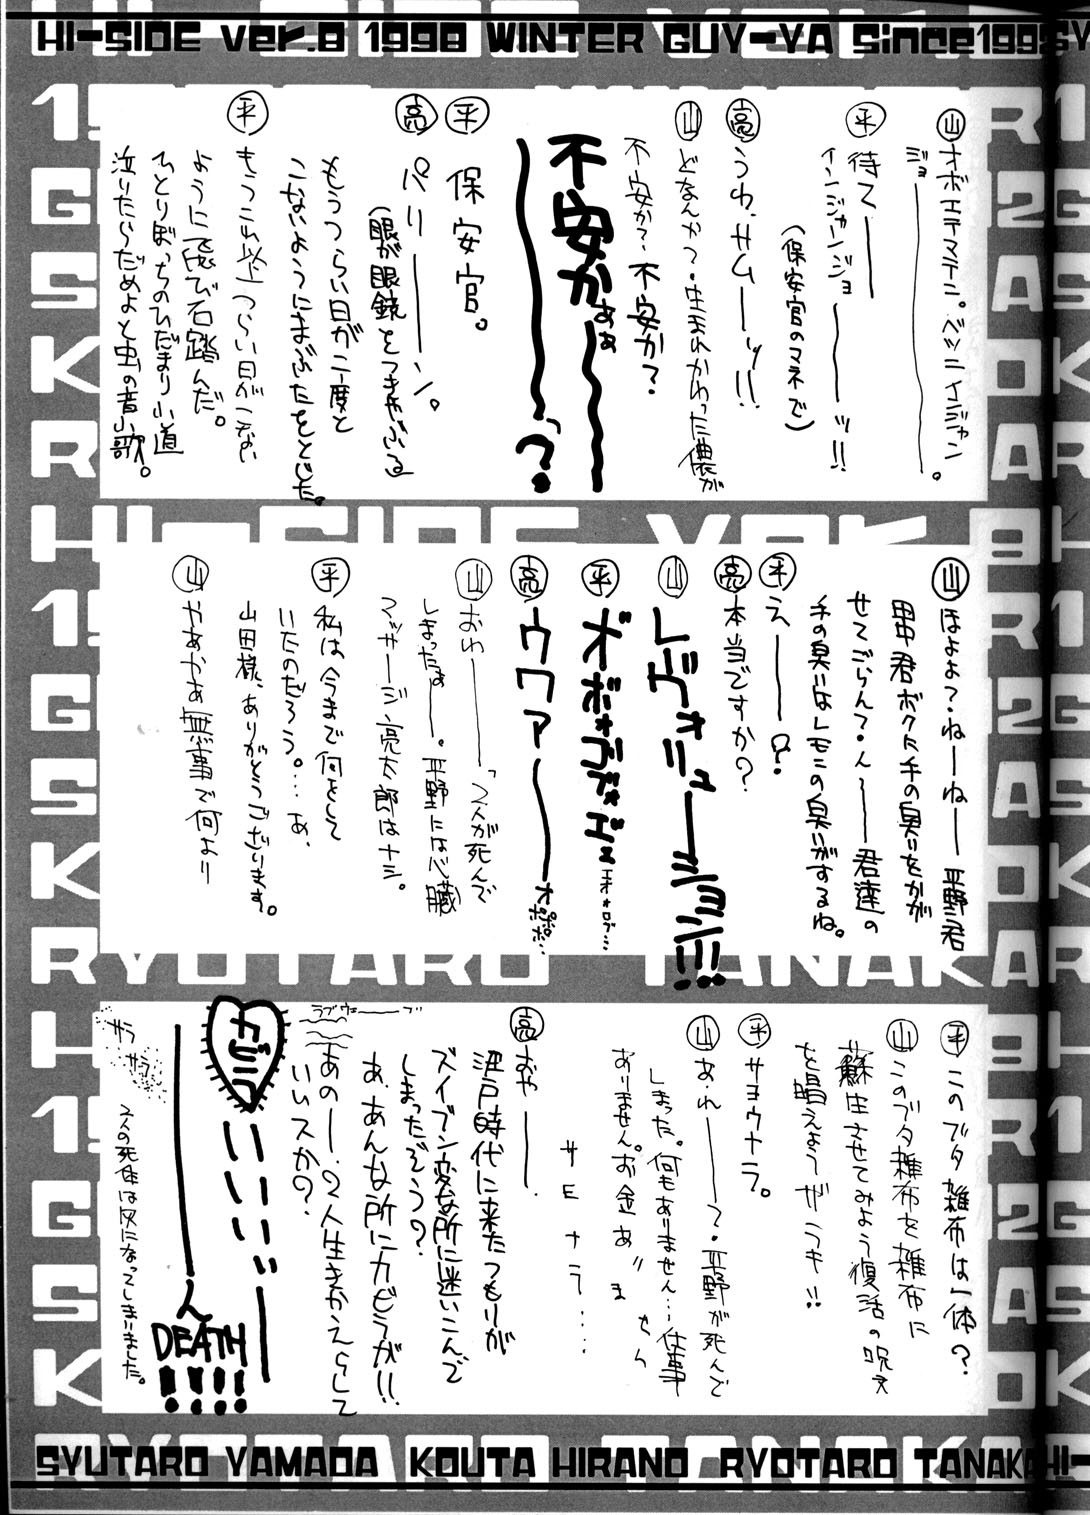 HI-SIDE ver.8 1998 WINTER GUY-YA Since199
山 オボエテマテン。ベツニインジャン
ジョ――――。
平 待て――
インジャンジョ――――ッ!!
(保安官のマネで)
亮 うわ、サム――ッ!!
山 どなんかつ・生まれかわった儂が
不安か?・不安か?
不安かぁぁ〜〜
〜〜〜っ?
平 保安官。
亮 パリ――ン。
(眼が眼鏡をつきやぶる
もうつらい日が二度と
こないようにまぶたをとじた。
平 もうこれ以上つらい日がこない
ように飛び石踏んだ。
ひとりぼっちのひだまり小道
泣いたらだめよと虫の音小歌。
山 ほよよ?ねーねー 平野君
田中君ボクに手の臭いをかが
せてごらん?・ん〜――君達の
手の臭いはレモンの臭いがするね。
平 え――?
亮 本当ですか?
山 レヴォリューション!!!
平 オボォブブェヴェ
亮 ウワァ〜――オ
ポポポ…
山 おわ――――・2人が死んで
しまったぁ――。平野には心臓
マッサージ、亮太郎はナシ。
平 私は今まで何をして
いたのだろう。…あ、
山田様、ありがとうございます。
山 やあやあ無事で何より
平 このブタ雑布は一体?
山 このブタ雑布を雑布に
蘇生させてみよう復活の呪文
を唱えよう ザラキ!!
平 サヨウナラ。
山 あ、れ――?・平野が死んで
しまった。何もありません…仕事
ありません。お金あ〃ま
せら
サ ヨ ナ ラ ‥‥
亮 おや――.
江戸時代に来たつもりが
ズイブン変な所に迷いこんで
しまったぞう?
あ、あんな所にカビラが!!
あの――.2人生きかえらして
いいスか?
ラブウェ―――ブ
カビラ いいいい――
――ん
DEATH
!!!!
サラ
サラ
2人の死体は灰になってしまいました。
SYUTARO YAMADA KOUTA HIRANO RYOTARO TANAKA HI-